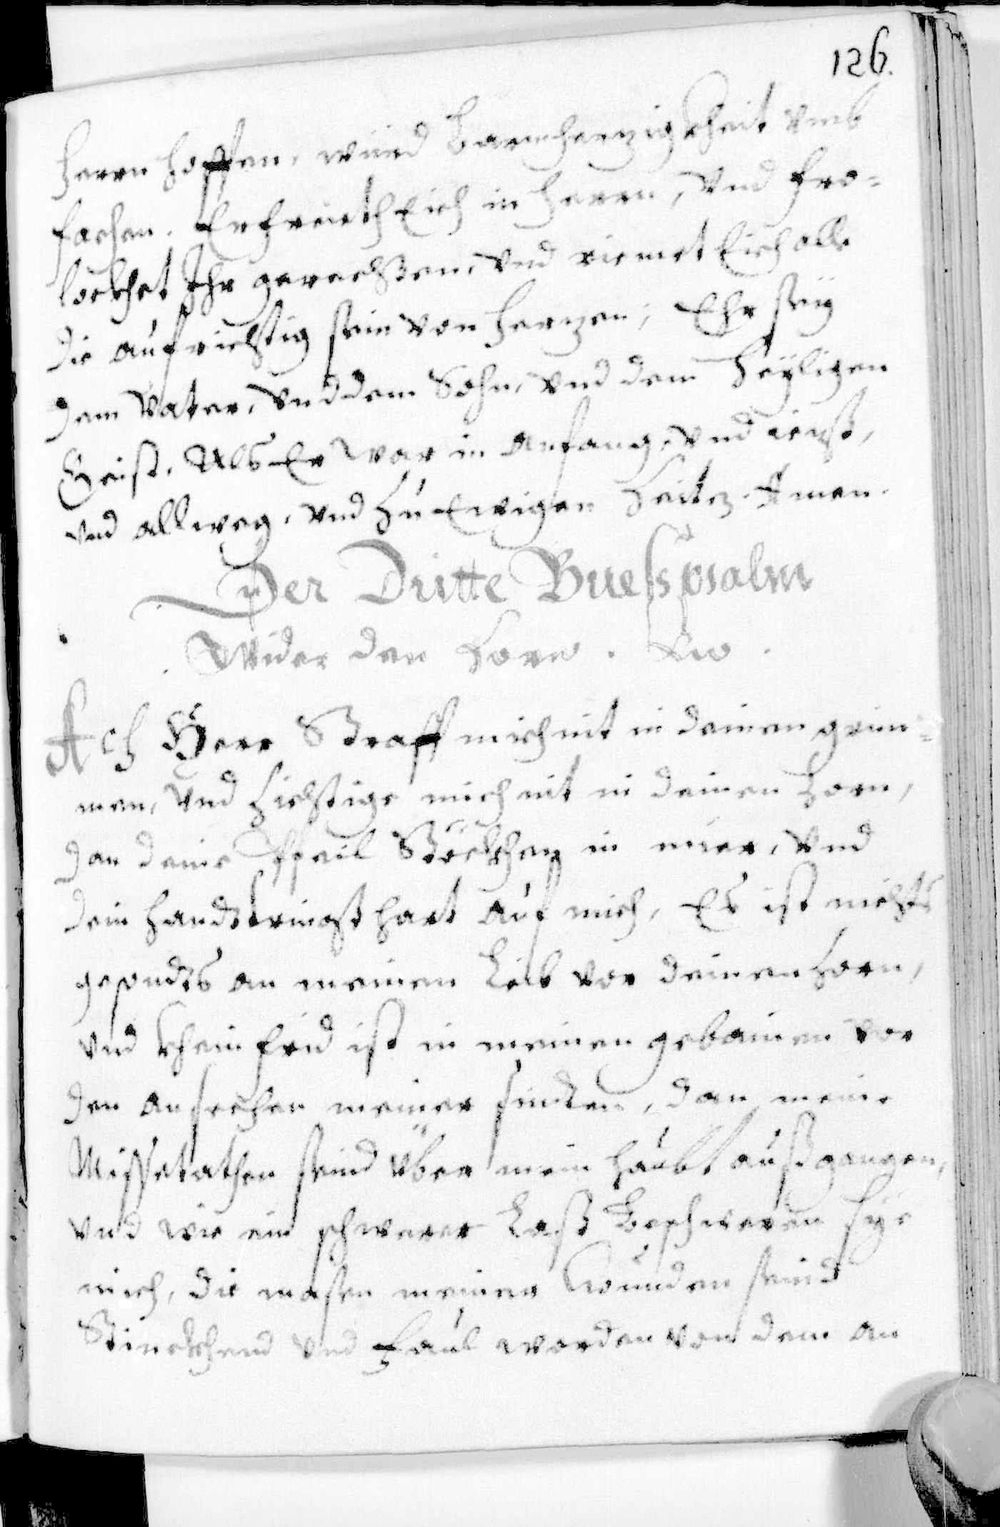 126.
herrn hoffen, würd barmherzigkheit vmb
fachen. Erfreüth Eich in herrn, vnd fro=
lockhet Jhr gerechten, vnd riemet Eich alle
die aufrichtig sein von herzen, Ehr seÿ
dem Vater, vnd dem Sohn, vnd dem heÿligen
Geist. Als Er war in anfang, vnd iezt,
vnd allweg, vnd zu Ewigen Zeiten. Amen.
Der Dritte Buesspsalm
Wider den Zorn.
Ach Herr Straff mich nit in deinen grim=
men, vnd zichtige mich nit in deinen Zorn,
dan deine pfeil Steckhen in mier, vnd
dein handt tringt hart auf mich, Es ist nichts
gesundts an meinen Leib vor deinen Zorn,
vnd khein frid ist in meinen gebainen vor
den ansechen meiner sindten, dan meine
Missetathen seind über mein haubt aufgangen,
vnd wie ein schwerer Last beschweren sÿe
mich, die masen meiner wunden seind
Stinckhend vnd faul worden von dem an